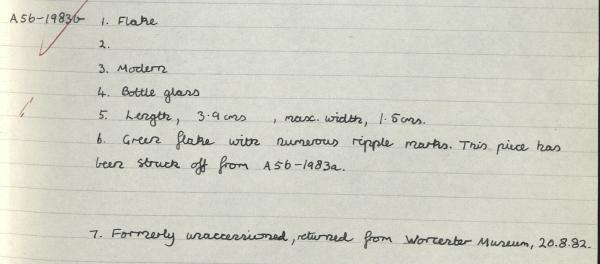 A56-1983b 1. Flake
2.
3. Modern
4. Bottle glass
5. Length, 3.9 cms , max. width, 1.5cms.
6. Green flake with numerous ripple marks. This piece has
been struck off from A56-1983a.
7. Formerly unaccessioned, returned from Worcester Museum, 20.8.82.